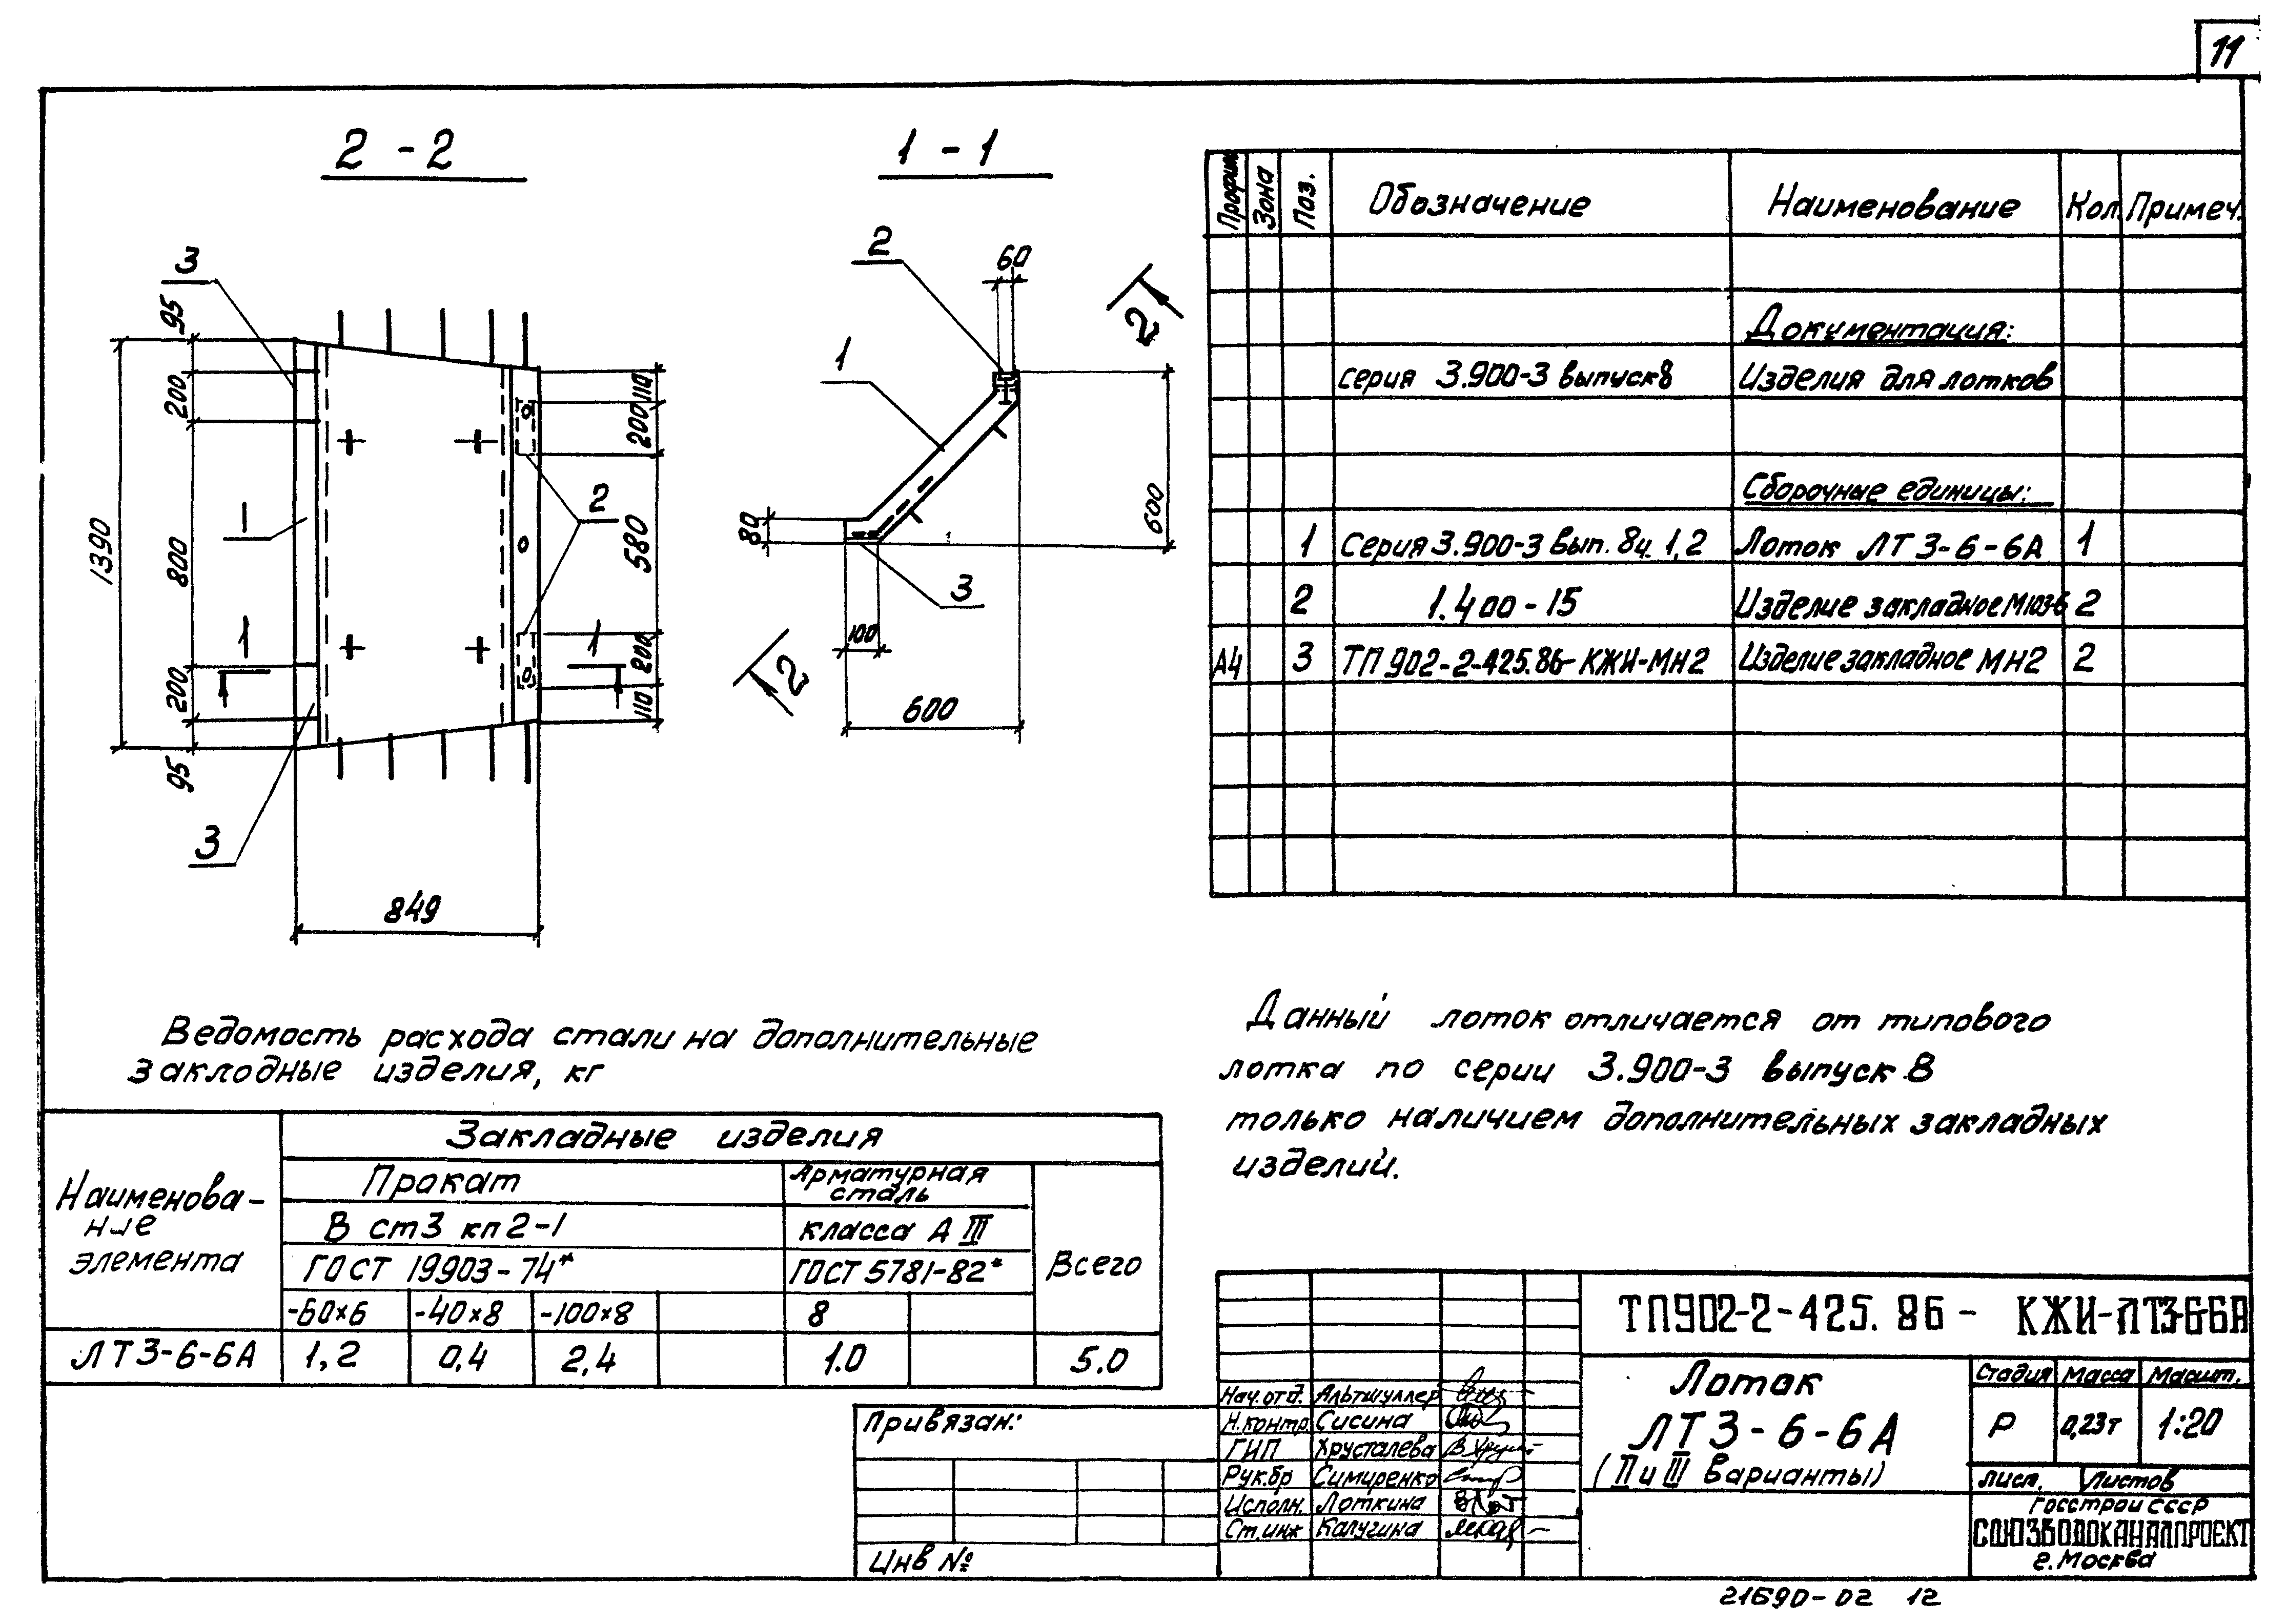 11
2 - 2
1 - 1
3
95
200
1390
800
1
1
200
95
3
849
110
200
2
580
1
200
110
2
60
1
2
80
600
3
100
2
600
Профил Зона Поз. Обозначение Наименование Кол. Примеч.
Документация:
серия 3.900-3 выпуск 8 Изделия для лотков
Сборочные единицы:
1 Серия 3.900-3 вып. 8 ч. 1,2 Лоток ЛТ 3-6-6А 1
2 1.400-15 Изделие закладное М103-6 2
А4 3 ТП 902-2-425.86-КЖИ-МН2 Изделие закладное МН2 2
Ведомость расхода стали на дополнительные
закладные изделия, кг
Наименова-
ние
элемента
Закладные изделия
Прокат
Арматурная
сталь
В ст3 кп2-1 класса А III
ГОСТ 19903-74* ГОСТ 5781-82* Всего
-60×6 -40×8 -100×8 8
ЛТ3-6-6А 1,2 0,4 2,4 1.0 5.0
Данный лоток отличается от типового
лотка по серии 3.900-3 выпуск 8
только наличием дополнительных закладных
изделий.
Привязан:
Инв №
Нач. отд. Альтшуллер
Н.контр. Сисина
ГИП Хрусталева
Рук.бр Симиренко
Исполн. Лоткина
Ст.инж Калугина
ТП902-2-425.86- КЖИ-ЛТ3-6-6А
Лоток
ЛТ3-6-6А
(II и III варианты)
Стадия Масса Масшт.
Р 0,23т 1:20
Лист. Листов
Госстрой СССР
СОЮЗВОДОКАНАЛПРОЕКТ
г.Москва
21690-02 12